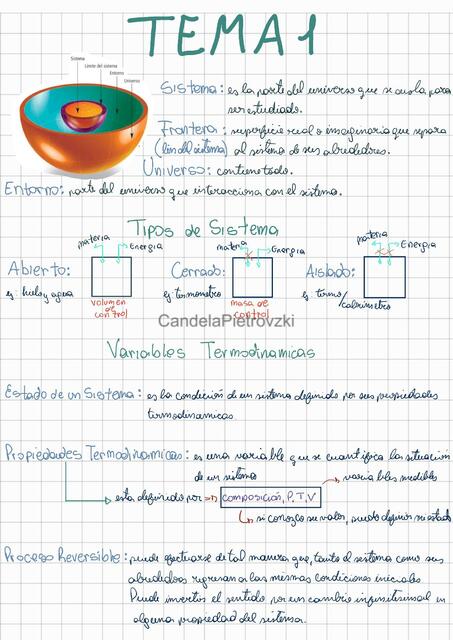 TEMA 1
Sistema
Límite del sistema
Entorno
Universo
Sistema: es la parte del universo que se aisla para
ser estudiado.
Frontera: superficie real o imaginaria que separa
(lim del sistema) al sistema de sus alrededores.
Universo: contiene todo.
Entorno: parte del universo que interacciona con el sistema.
Tipos de Sistema
materia Energia
materia Energia
materia Energia
Abierto: Cerrado: Aislado:
ej: hielo y agua ej: termometro ej: termo/
calorimetro
volumen de control
masa de control
CandelaPietrovzki
Variables Termodinamicas
Estado de un Sistema: es la condición de un sistema definido por sus propiedades
termodinamicas
Propiedades Termodinamicas: es una variable que se cuantifica la situación
de un sistema
variables medibles
esta definido por composición, P, T, V
si conozco su valor, puedo definir mi estado
Proceso Reversible: puede efectuarse de tal manera que, tanto el sistema como sus
alrededores regresan a las mismas condiciones iniciales.
Puede invertir el sentido por un cambio infinitesimal en
alguna propiedad del sistema.